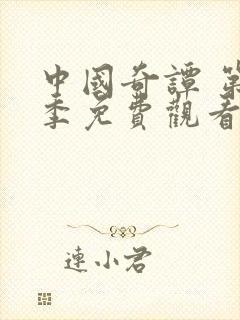 中國奇譚 第
季免費觀看
連小君